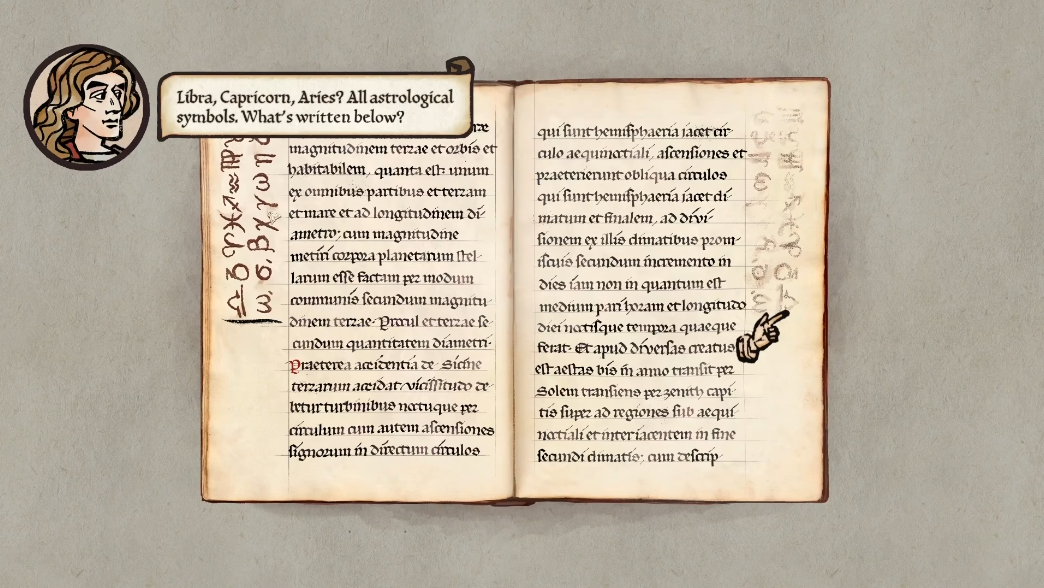 Libra, Capricorn, Aries? All astrological
symbols. What's written below?
magnitudinem terzae et orbis et
habitabilem, quanta est unum
ex omnibus partibus et terzam
et mare et ad longitudinem di-
ametro; cum magnitudine
metiri corpora planetarum stel-
larum esse factam per modum
communis secundum magnitu-
dinem terzae. Procul et terzae se-
cundum quantitatem diametri.
Praeterea accidentia de Sicine
terzarum accidat vicissitudo de-
betur turbinibus noctuque per
circulum cum autem ascensiones
signorum in directum circulos
qui sunt hemisphaeria jacet cir-
culo aequinoctiali, ascensiones et
praeterierunt obliqua circulos
qui sunt hemisphaeria jacet di-
matum et finalem, ad divi-
sionem ex illis climatibus prom-
iscuis secundum incremento in
dies iam non in quantum est
medium pari horam et longitudo
diei noctisque tempora quaeque
ferat. Et apud diversas creatus
est aestas bis in anno transit per
Solem transiens per zenith capi-
tis super ad regiones sub aequi-
noctiali et interiacentem in fine
secundi climatis; cum descrip-